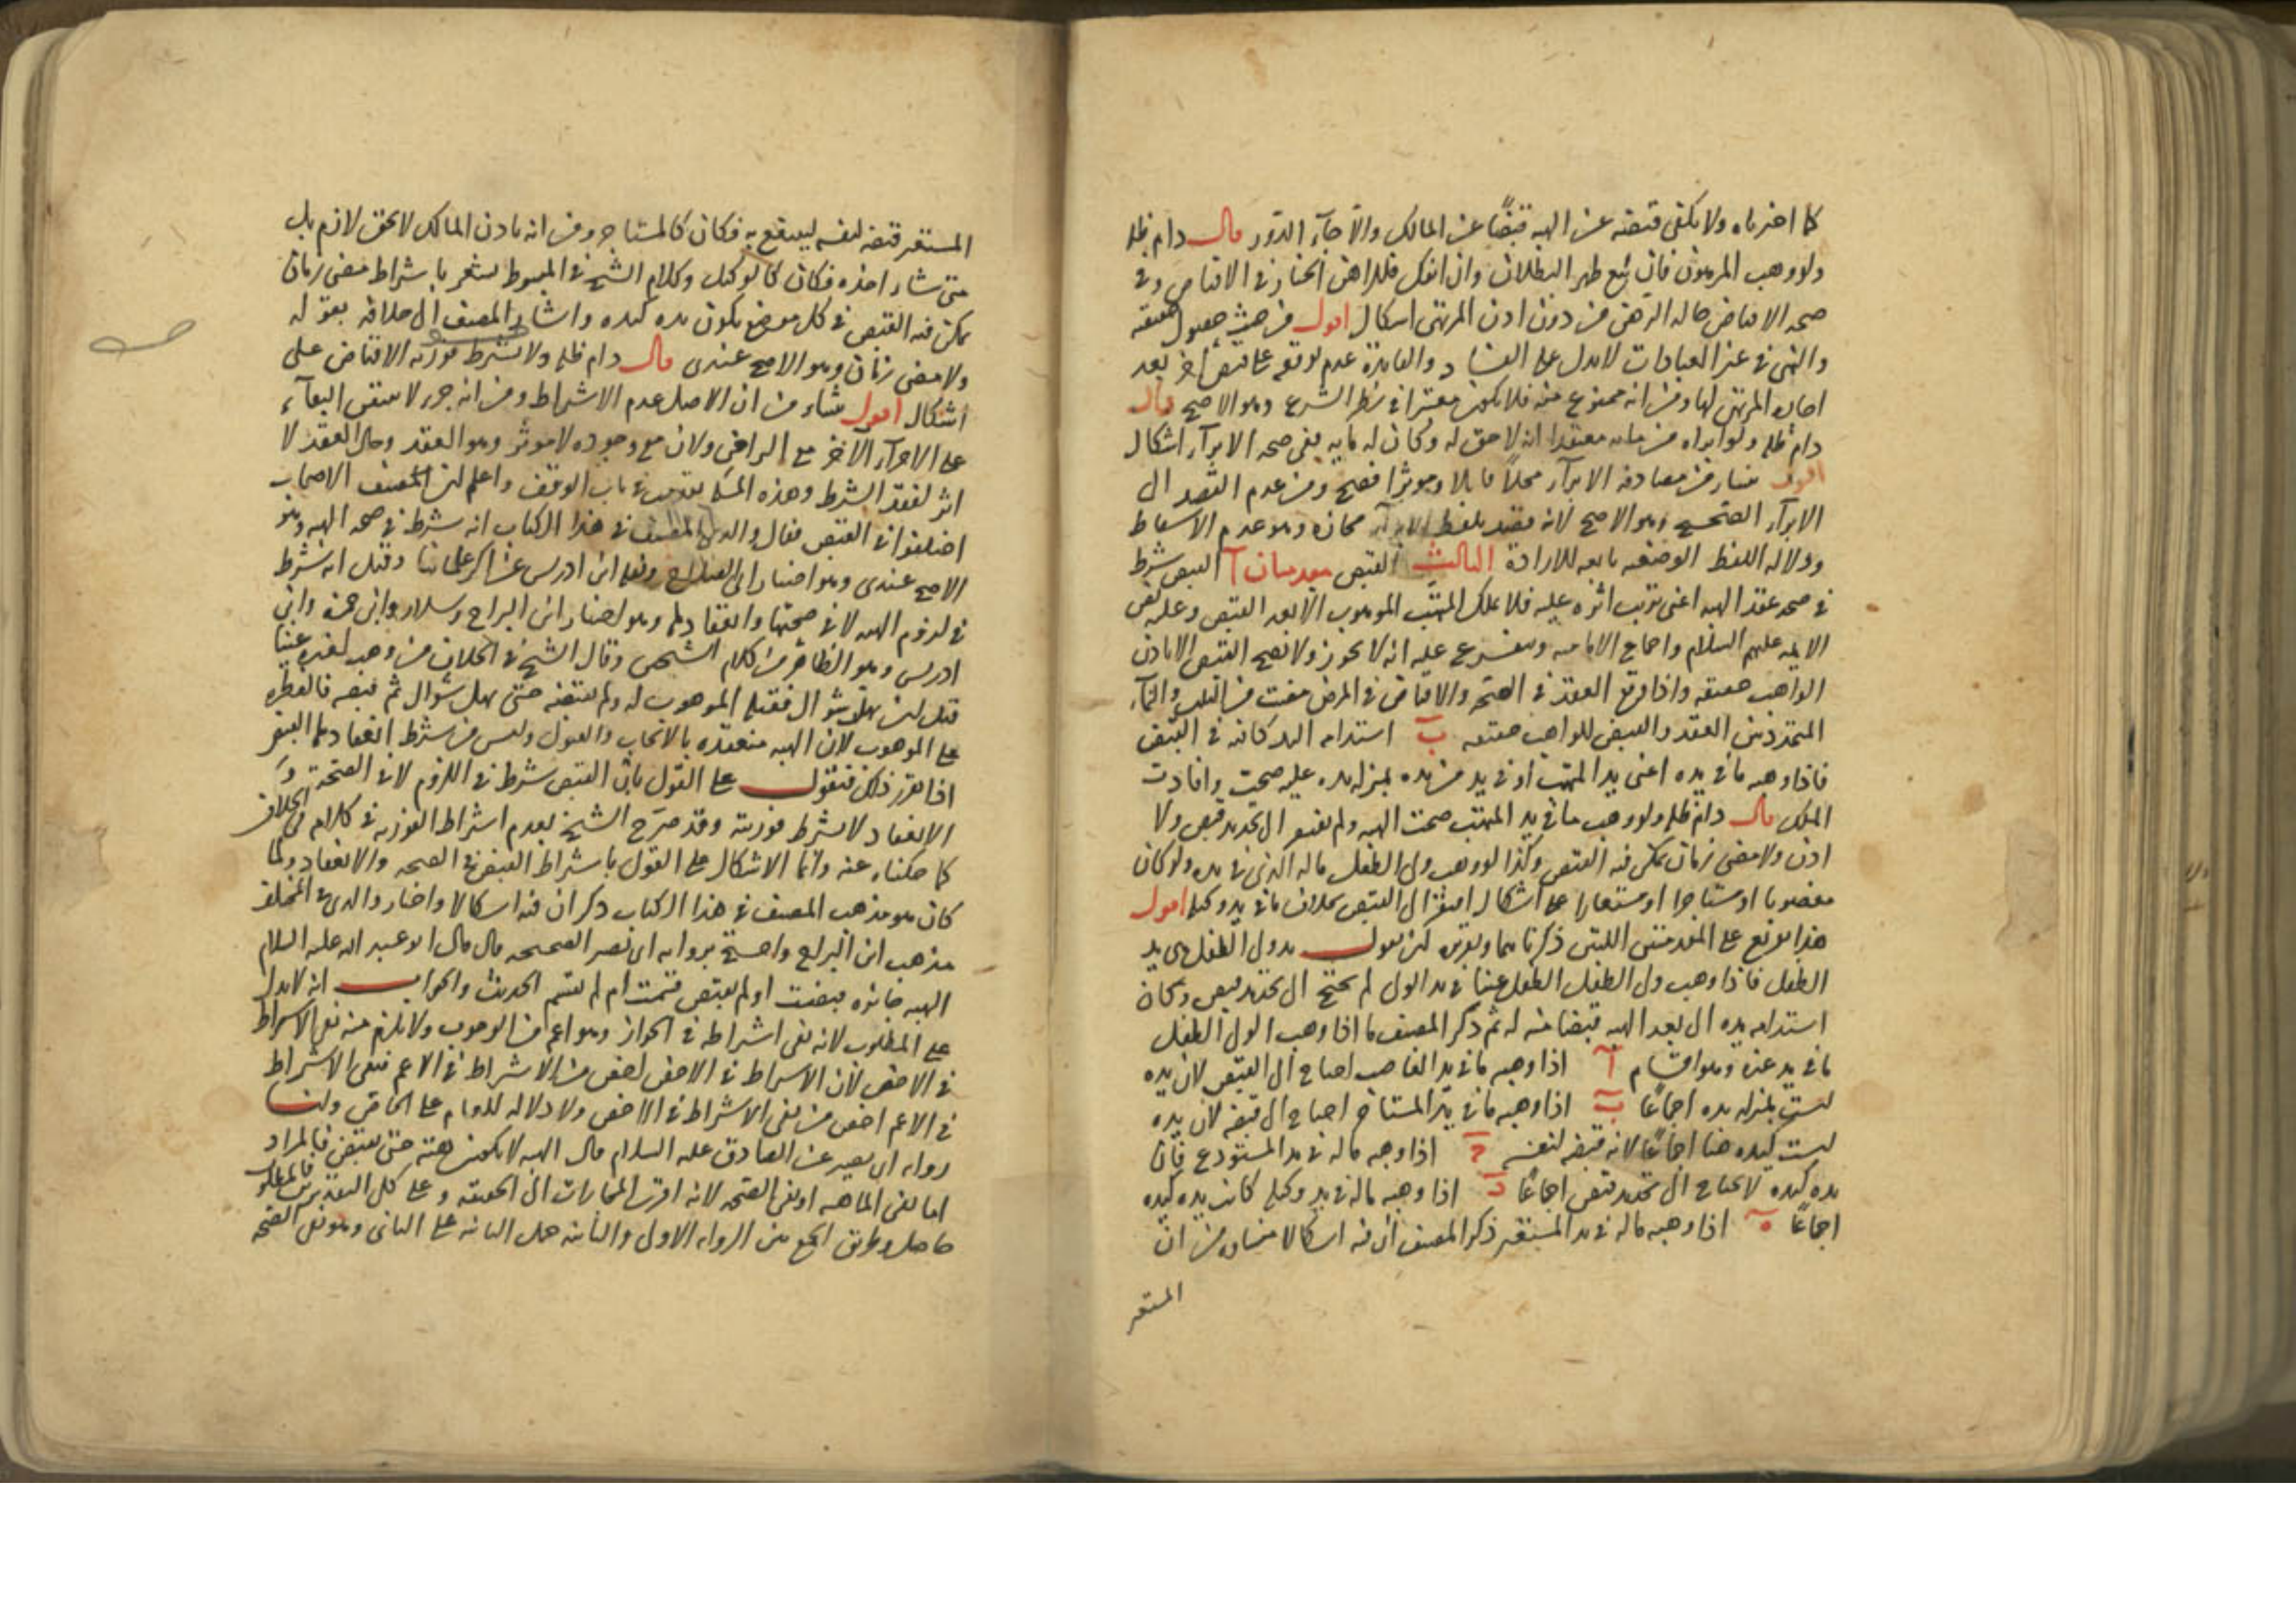 كما اخترناه ولا يكفى قبضه عن الهبه قبضا عن المالك والا جاء الدور قال دام ظله
ولو وهب المرهون فان بيع ظهر البطلان وان انفك فللراهن الخيار فى الاقباض وفى
صحه الاقباض حاله الرهن من دون اذن المرتهن اشكال اقول من حيث حصول حقيقته
والنهى فى غير العبادات لا يدل على الفساد والفايدة عدم توقفه على قبض آخر بعد
اجازه المرتهن لها ومن انه ممنوع منه فلا يكون معتبرا فى نظر الشرع وهو الاصح قال
دام ظله ولو ابراه من مايه معتقدا انه لا حق له وكان له مايه ففى صحه الابراء اشكال
اقول منشاء من مصادفه الابراء محلا قابلا وموثرا فصح ومن عدم القصد الى
الابراء الصحيح وهو الاصح لانه قصد بلفظ الابراء مجازه وهو عدم الاسقاط
ودلاله اللفظ الوضعيه تابعه للاراده الثالث القبض مقدمتان آ القبض شرط
فى صحه عقد الهبه اعنى ترتب اثره عليه فلا يملك المتهب الموهوب الا بعد القبض وعليه نص
الايمه عليهم السلام واجماع الاماميه ويتفرع عليه انه لا يجوز ولا يصح القبض الا باذن
الواهب حقيقه واذا وقع العقد فى الصحه والاقباض فى المرض مضت من الثلث والنماء
المتجدد بين العقد والقبض للواهب حقيقه ب استدامه اليد كافيه فى القبض
فاذا وهبه ما فى يده اعنى يد المتهب او فى يد من يده بمنزله يده عليه صحت وافادت
الملك قال دام ظله ولو وهب ما فى يد المتهب صحت الهبه ولم يفتقر الى تجديد قبض ولا
اذن ولا مضى زمان يمكن فيه القبض وكذا لو وهب ولى الطفل ماله الذى فى يده ولو كان
مغصوبا او مستاجرا او مستعارا على اشكال افتقر الى القبض بخلاف ما فى يد وكيله اقول
هذا يتفرع على المقدمتين اللتين ذكرناهما وتقريره ان نقول يد ولى الطفل هى يد
الطفل فاذا وهب ولى الطفل الطفل عينا فى يد الولى لم يحتج الى تجديد قبض وكان
استدامه يده الى بعد الهبه قبضا منه له ثم ذكر المصنف ما اذا وهب الولى الطفل
ما فى يد غيره وهو اقسام آ اذا وهبه ما فى يد الغاصب احتاج الى القبض لان يده
ليست بمنزله يده اجماعا ب اذا وهبه ما فى يد المستاجر احتاج الى قبضه لان يده
ليست كيده هنا اجماعا لانه قبضه لنفسه ج اذا وهبه ماله فى يد المستودع فان
يده كيده لا يحتاج الى تجديد قبض اجماعا د اذا وهبه ماله فى يد وكيله كانت يده كيده
اجماعا ه اذا وهبه ماله فى يد المستعير ذكر المصنف ان فيه اشكالا منشاه من ان
المستعير
المستعير قبضه لنفسه لينتفع به فكان كالمستاجر ومن انه باذن المالك لا بحق لازم بل
متى شاء اخذه فكان كالوكيل وكلام الشيخ فى المبسوط يشعر باشتراط مضى زمان
يمكن فيه القبض فى كل موضع يكون يده كيده واشار المصنف الى خلافه بقوله
ولا مضى زمان وهو الاصح عندى قال دام ظله ولا يشترط فوريه الاقباض على
اشكال اقول منشاء من ان الاصل عدم الاشتراط ومن انه جزء لا يبتنى البقاء
على الاجزاء الاخر مع التراخى ولان مع وجوده لا موثر وهو العقد وحال العقد لا
اثر لفقد الشرط وهذه المسئله تقدمت فى باب الوقف واعلم ان المصنف الاصحاب
اختلفوا فى القبض فقال والدى المصنف فى هذا الكتاب انه شرط فى صحه الهبه وهو
الاصح عندى وهو اختيار ابى الصلاح ونقله ابن ادريس عن اكثر علمائنا وقيل انه شرط
فى لزوم الهبه لا فى صحتها وانعقادها وهو اختيار ابن البراج وسلار وابن حمزه وابن
ادريس وهو الظاهر من كلام الشيخين وقال الشيخ فى الخلاف من وهب لغيره عينا
قبل ان يهل شوال فقبله الموهوب له ولم يقبضه حتى يهل شوال ثم قبضه فالفطره
على الموهوب لان الهبه منعقده بالايجاب والقبول وليس من شرط انعقادها القبض
اذا تقرر ذلك فنقول على القول بان القبض شرط فى اللزوم لا فى الصحة و
الانعقاد لا يشترط فوريته وقد صرح الشيخ بعدم اشتراط الفوريه فى كلام الخلاف
كما حكيناه عنه وانما الاشكال على القول باشتراط القبض فى الصحه والانعقاد ولما
كان هو مذهب المصنف فى هذا الكتاب ذكر ان فيه اشكالا واختار والدى فى المختلف
مذهب ابن البراج واحتج بروايه ابى نصر الصحيحه قال قال ابو عبد الله عليه السلام
الهبه جائزه قبضت او لم يقبض قسمت ام لم تقسم الحديث والجواب انه لا يدل
على المطلوب لانه نفى اشتراطه فى الجواز وهو اعم من الوجوب ولا يلزم منه نفى الاشتراط
فى الاخص لان الاشتراط فى الاخص اخص من الاشتراط فى الاعم فنفى الاشتراط
فى الاعم اخص من نفى الاشتراط فى الاخص ولا دلاله للعام على الخاص ولنا
روايه ابى بصير عن الصادق عليه السلام قال الهبه لا تكون هبه حتى يقبض فالمراد
اما نفى الماهيه او نفى الصحه لانه اقرب المجازات الى الحقيقه وعلى كل التقديرين فالمطلوب
حاصل وطريق الجمع بين الروايه الاولى والثانيه حمل الثانيه على الثانى وهو نفى الصحه